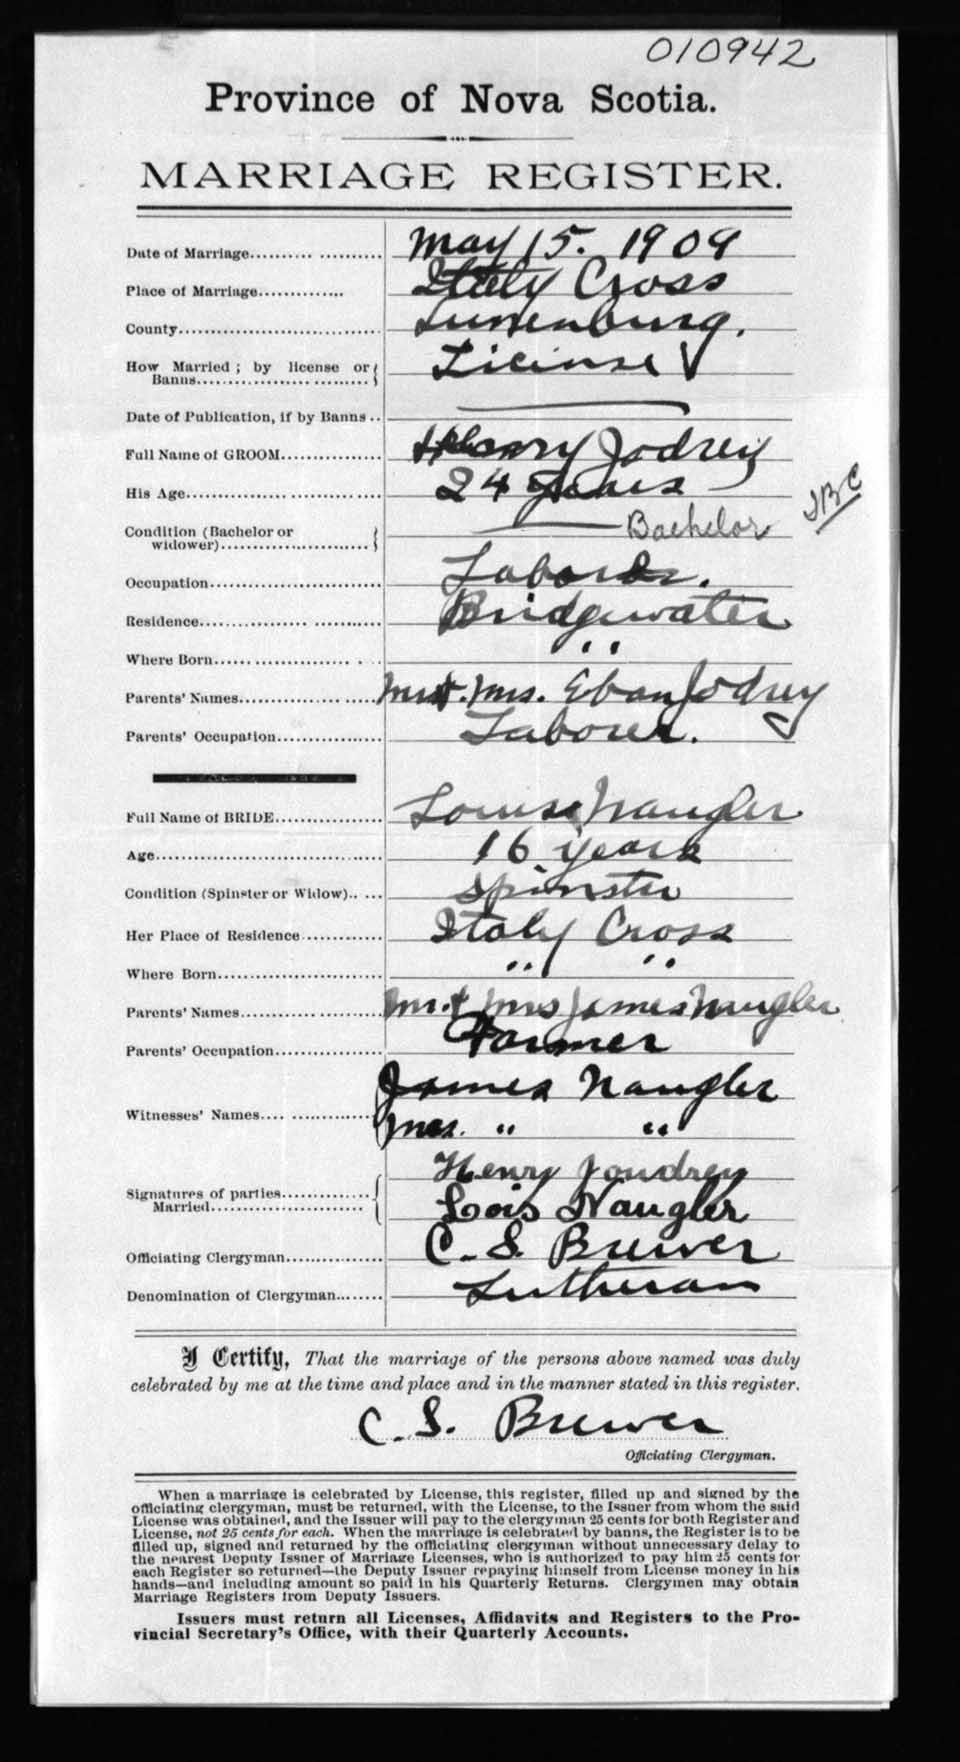 010942
Province of Nova Scotia.
MARRIAGE REGISTER.
Date of Marriage May 15. 1909
Place of Marriage Italy Cross
County Lunenburg.
How Married; by license or Banns License
Date of Publication, if by Banns
Full Name of GROOM Henry Jodrey
His Age 24 years
Condition (Bachelor or widower) Bachelor
JBC
Occupation Laborer.
Residence Bridgewater
Where Born " "
Parents' Names Mr & Mrs. Eban Jodrey
Parents' Occupation Laborer.
Full Name of BRIDE Louise Naugler
Age 16 years
Condition (Spinster or Widow) Spinster
Her Place of Residence Italy Cross
Where Born " "
Parents' Names Mr. & Mrs James Naugler
Parents' Occupation Farmer
Witnesses' Names James Naugler
Mrs. " "
Signatures of parties Married Henry Joudrey
Lois Naugler
Officiating Clergyman C. S. Brewer
Denomination of Clergyman Lutheran
I Certify, That the marriage of the persons above named was duly
celebrated by me at the time and place and in the manner stated in this register.
C. S. Brewer
Officiating Clergyman.
When a marriage is celebrated by License, this register, filled up and signed by the
officiating clergyman, must be returned, with the License, to the Issuer from whom the said
License was obtained, and the Issuer will pay to the clergyman 25 cents for both Register and
License, not 25 cents for each. When the marriage is celebrated by banns, the Register is to be
filled up, signed and returned by the officiating clergyman without unnecessary delay to
the nearest Deputy Issuer of Marriage Licenses, who is authorized to pay him 25 cents for
each Register so returned—the Deputy Issuer repaying himself from License money in his
hands—and including amount so paid in his Quarterly Returns. Clergymen may obtain
Marriage Registers from Deputy Issuers.
Issuers must return all Licenses, Affidavits and Registers to the Pro-
vincial Secretary's Office, with their Quarterly Accounts.